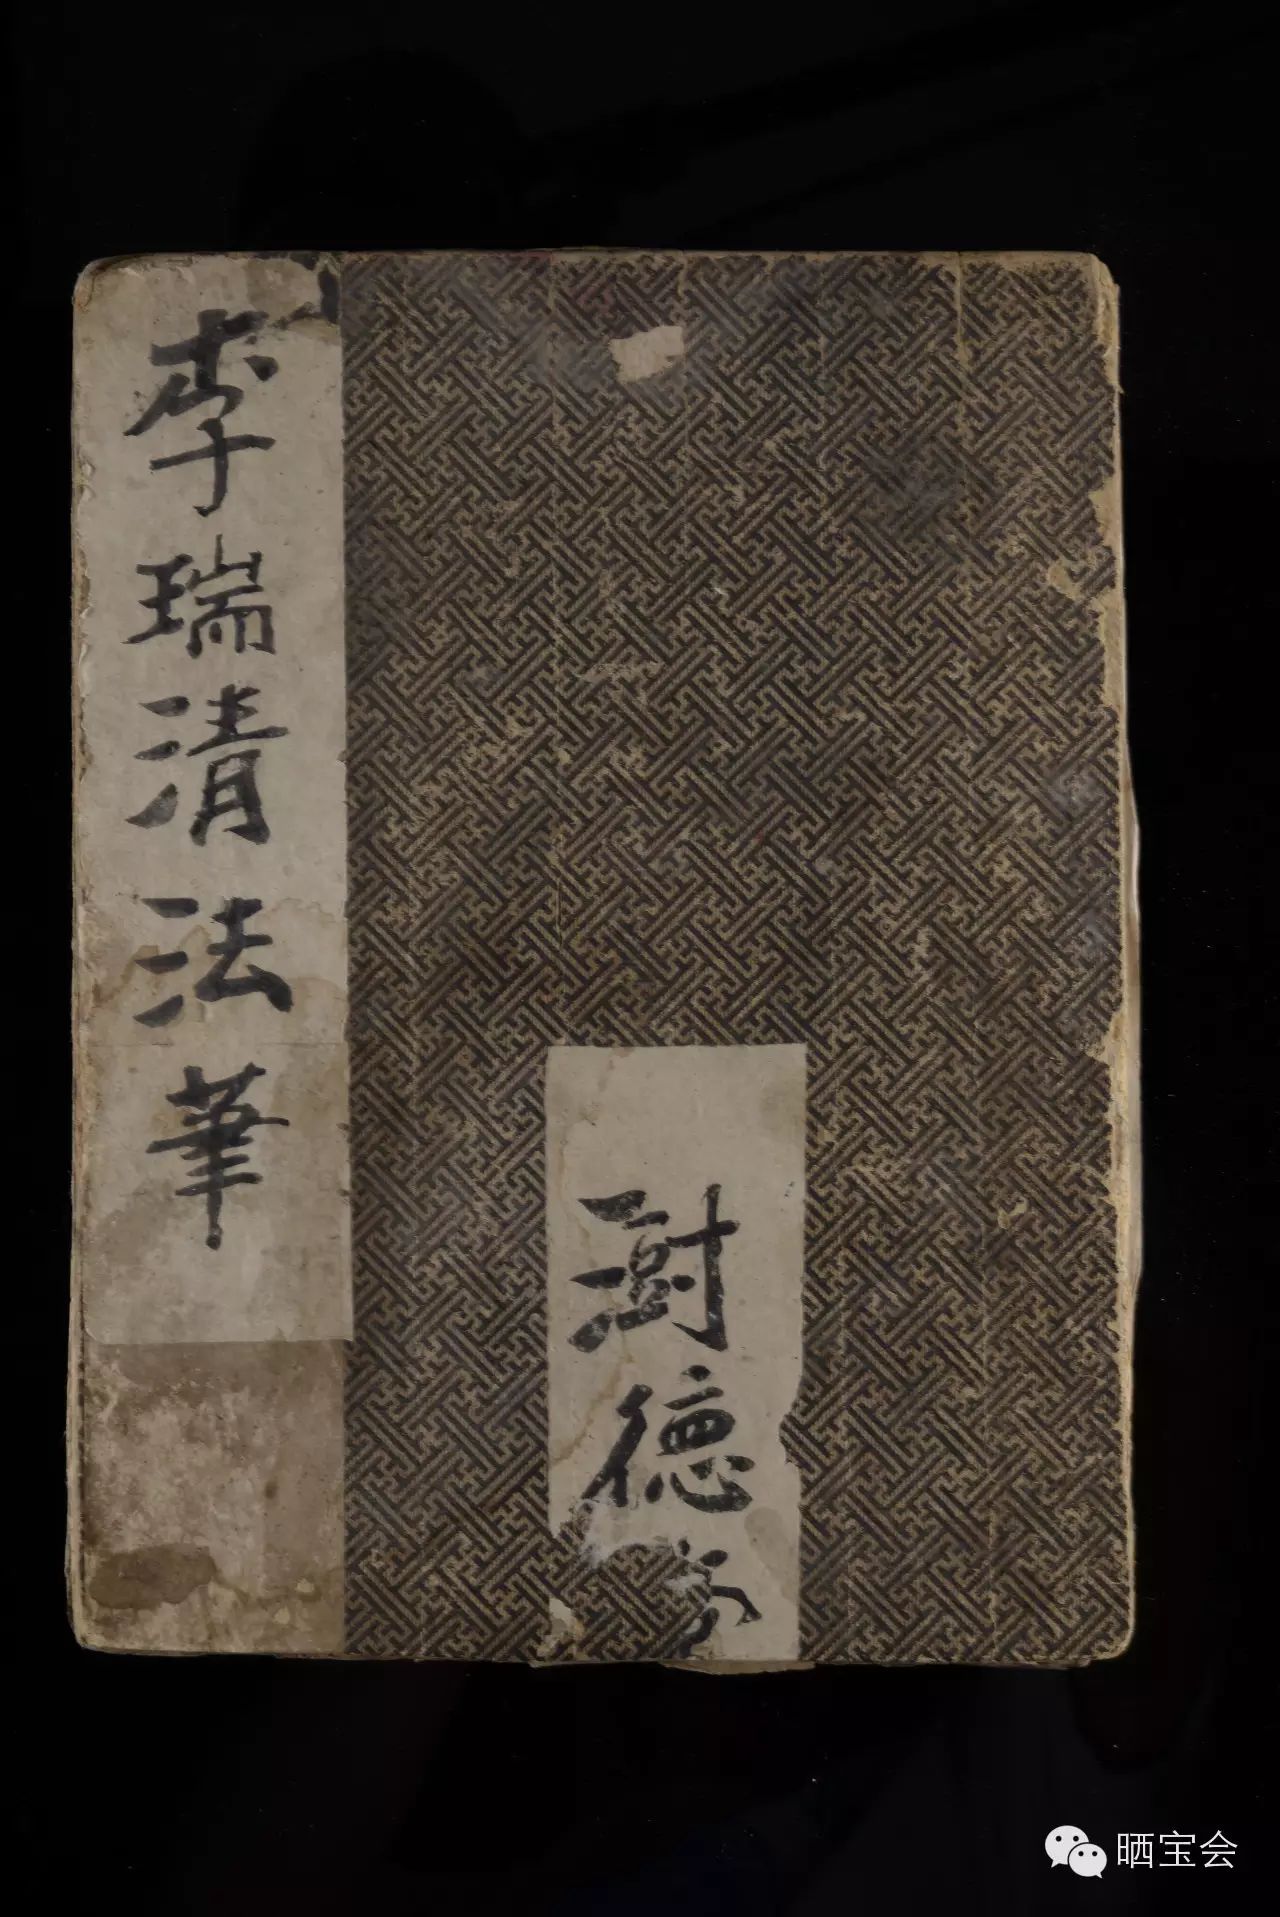 李瑞清法筆
澍德
晒宝会